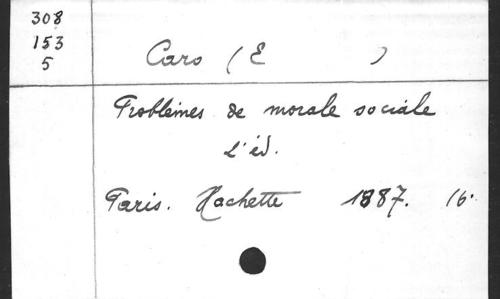 308
153
5
Caro (E )
Problèmes de morale sociale
2ᵉ éd.
Paris. Hachette 1887. 16.